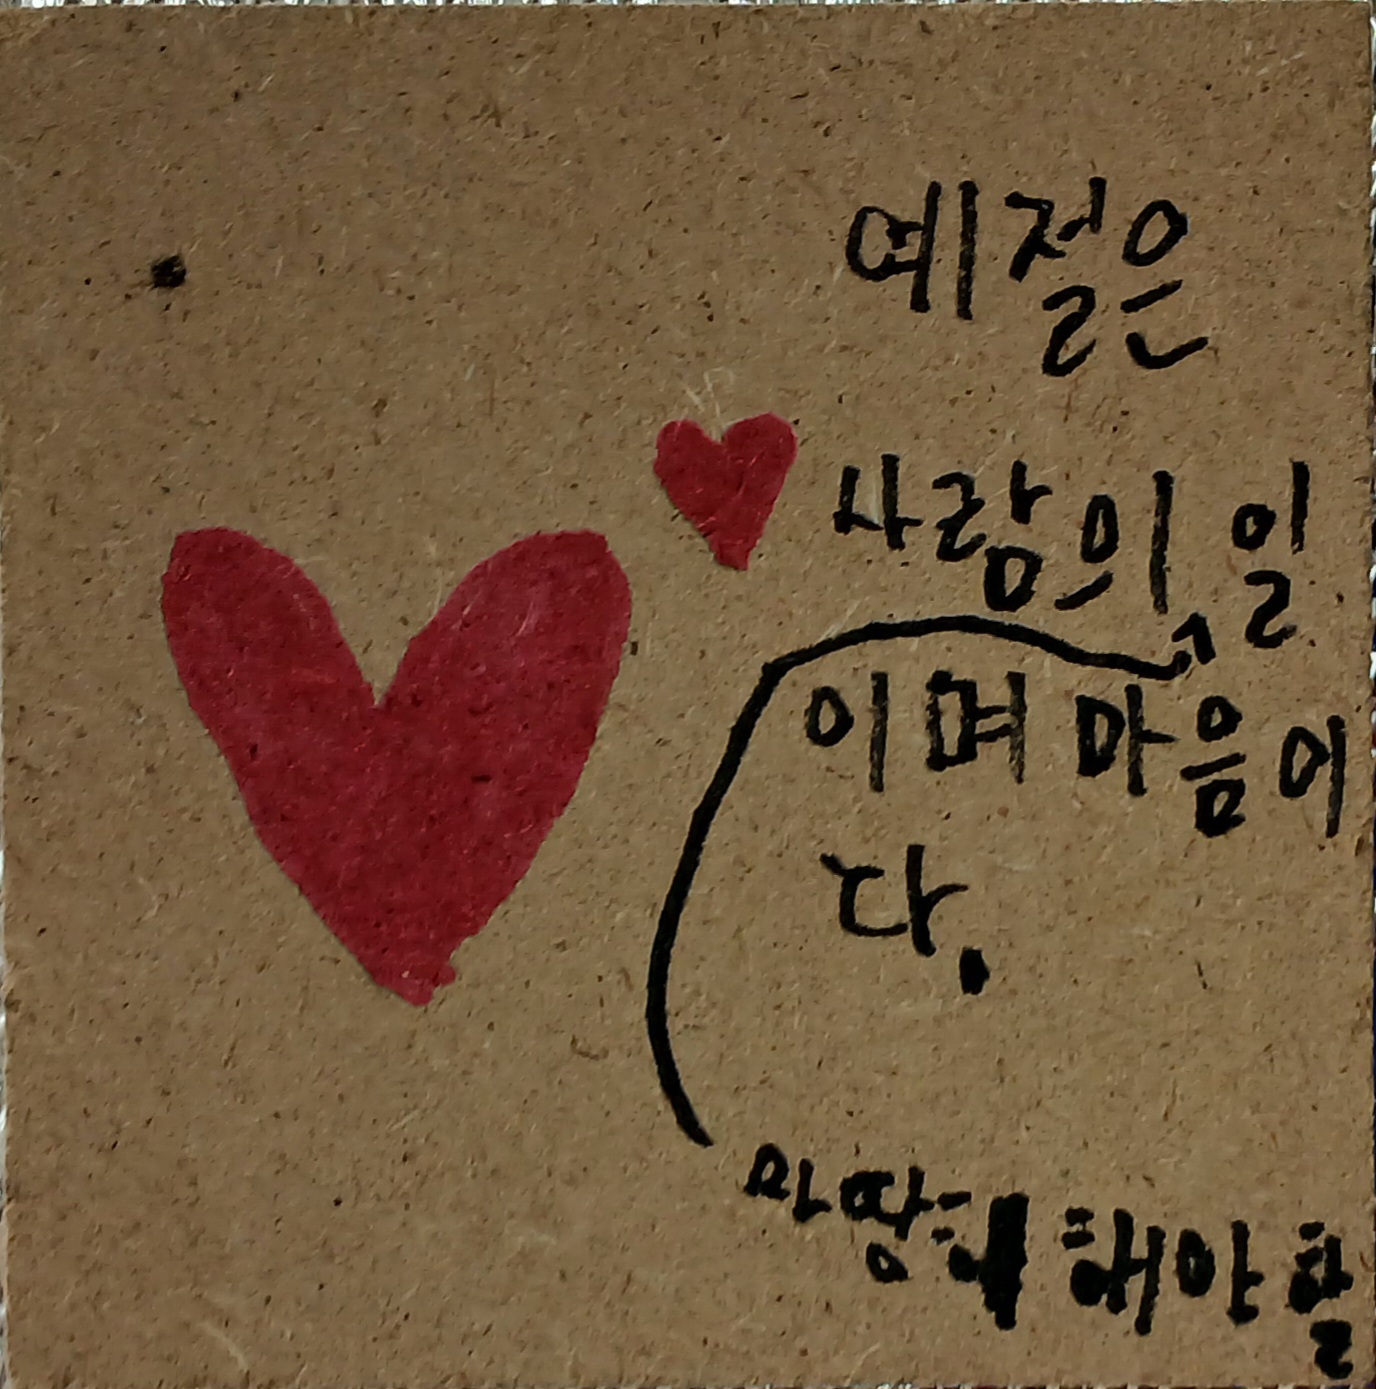 예절은
사람의 일
이며 마음이
다.
마땅히 해야 할